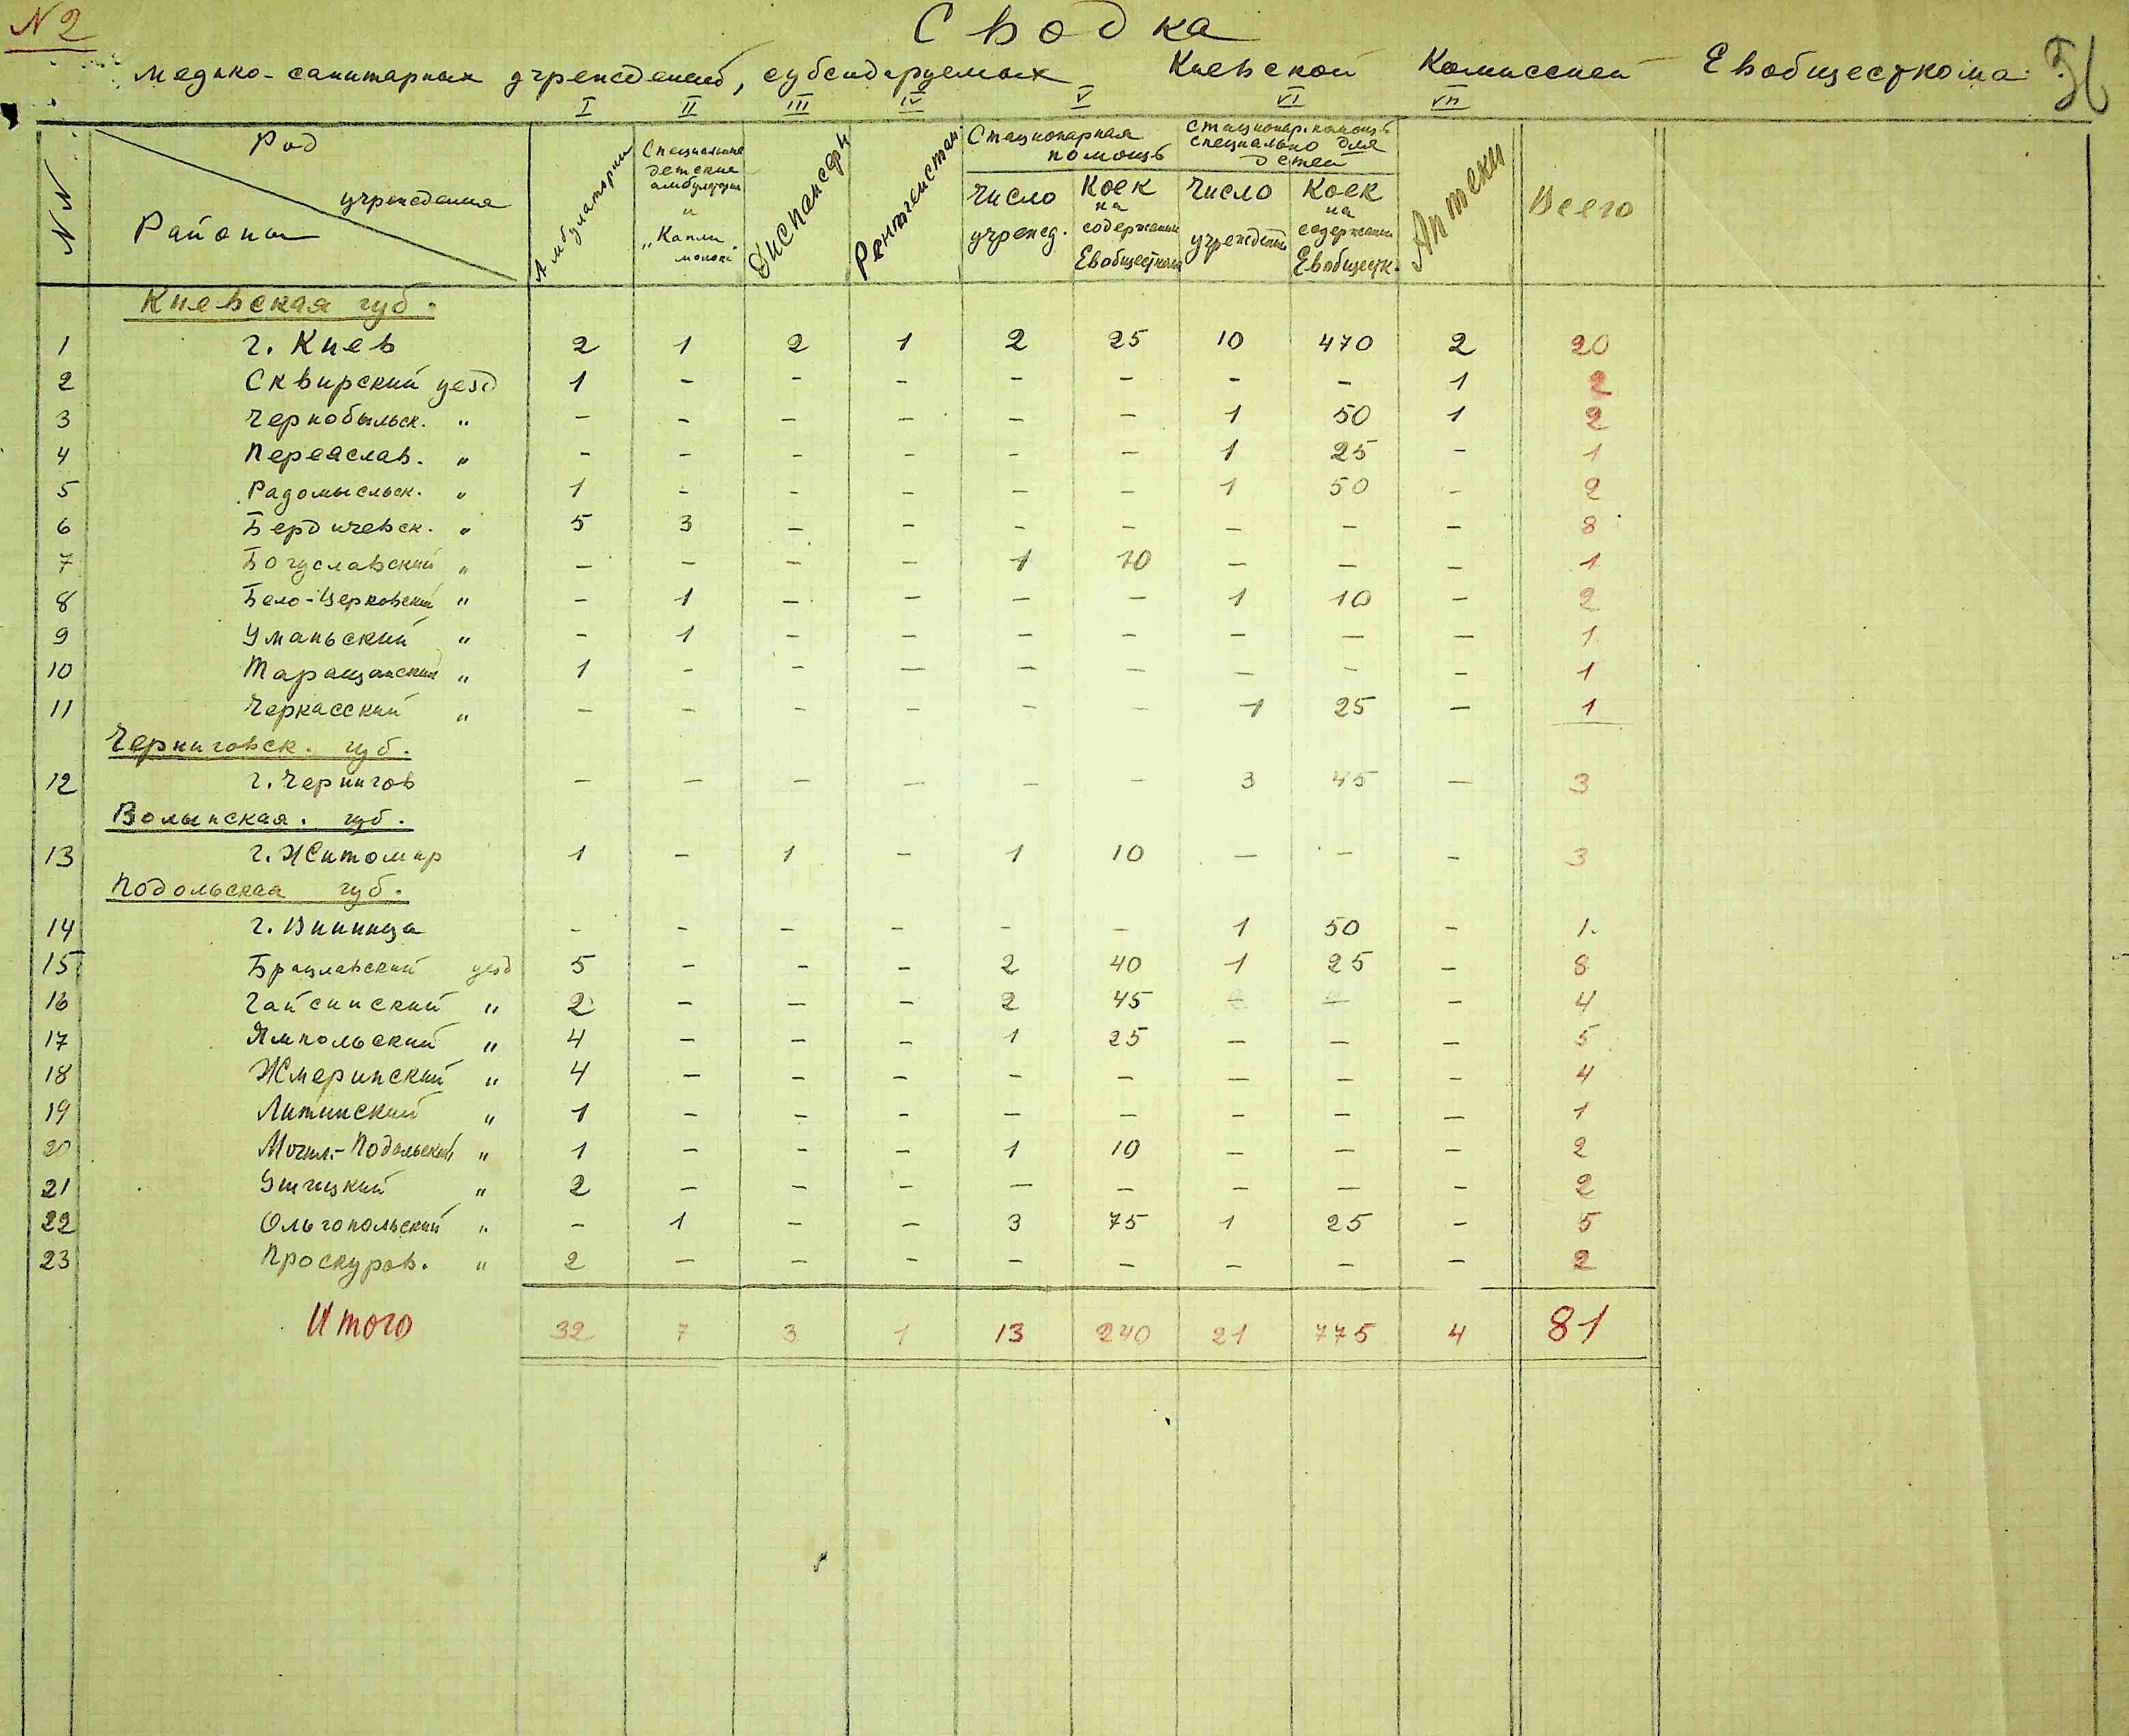 N 2
Сводка
медико-санитарных учреждений, субсидируемых Киевской Комиссией Евобщесткома
I II III IV V VI VII
NN Род учреждения Районы
Амбулатории
Специальные детские амбулатории и „Капли молока"
Диспансеры
Рентгенстан.
Стационарная помощь
Число учрежд.
Коек на содержании Евобщесткома
Стационар. помощь специально для детей
Число учреждений
Коек на содержании Евобщестк.
Аптеки
Всего
Киевская губ.
1 г. Киев 2 1 2 1 2 25 10 470 2 20
2 Сквирский уезд 1 - - - - - - - 1 2
3 Чернобыльск. " - - - - - - 1 50 1 2
4 Переяслав. " - - - - - - 1 25 - 1
5 Радомысльск. " 1 - - - - - 1 50 - 2
6 Бердичевск. " 5 3 - - - - - - - 8
7 Богуславский " - - - - 1 10 - - - 1
8 Бело-Церковский " - 1 - - - - 1 10 - 2
9 Уманьский " - 1 - - - - - - - 1
10 Таращанский " 1 - - - - - - - - 1
11 Черкасский " - - - - - - 1 25 - 1
Черниговск. губ.
12 г. Чернигов - - - - - - 3 45 - 3
Волынская. губ.
13 г. Житомир 1 - 1 - 1 10 - - - 3
Подольская губ.
14 г. Винница - - - - - - 1 50 - 1
15 Брацлавский уезд 5 - - - 2 40 1 25 - 8
16 Гайсинский " 2 - - - 2 45 - - - 4
17 Ямпольский " 4 - - - 1 25 - - - 5
18 Жмеринский " 4 - - - - - - - - 4
19 Литинский " 1 - - - - - - - - 1
20 Могил.-Подольский " 1 - - - 1 10 - - - 2
21 Ушицкий " 2 - - - - - - - - 2
22 Ольгопольский " - 1 - - 3 75 1 25 - 5
23 Проскуров. " 2 - - - - - - - - 2
Итого 32 7 3 1 13 240 21 775 4 81